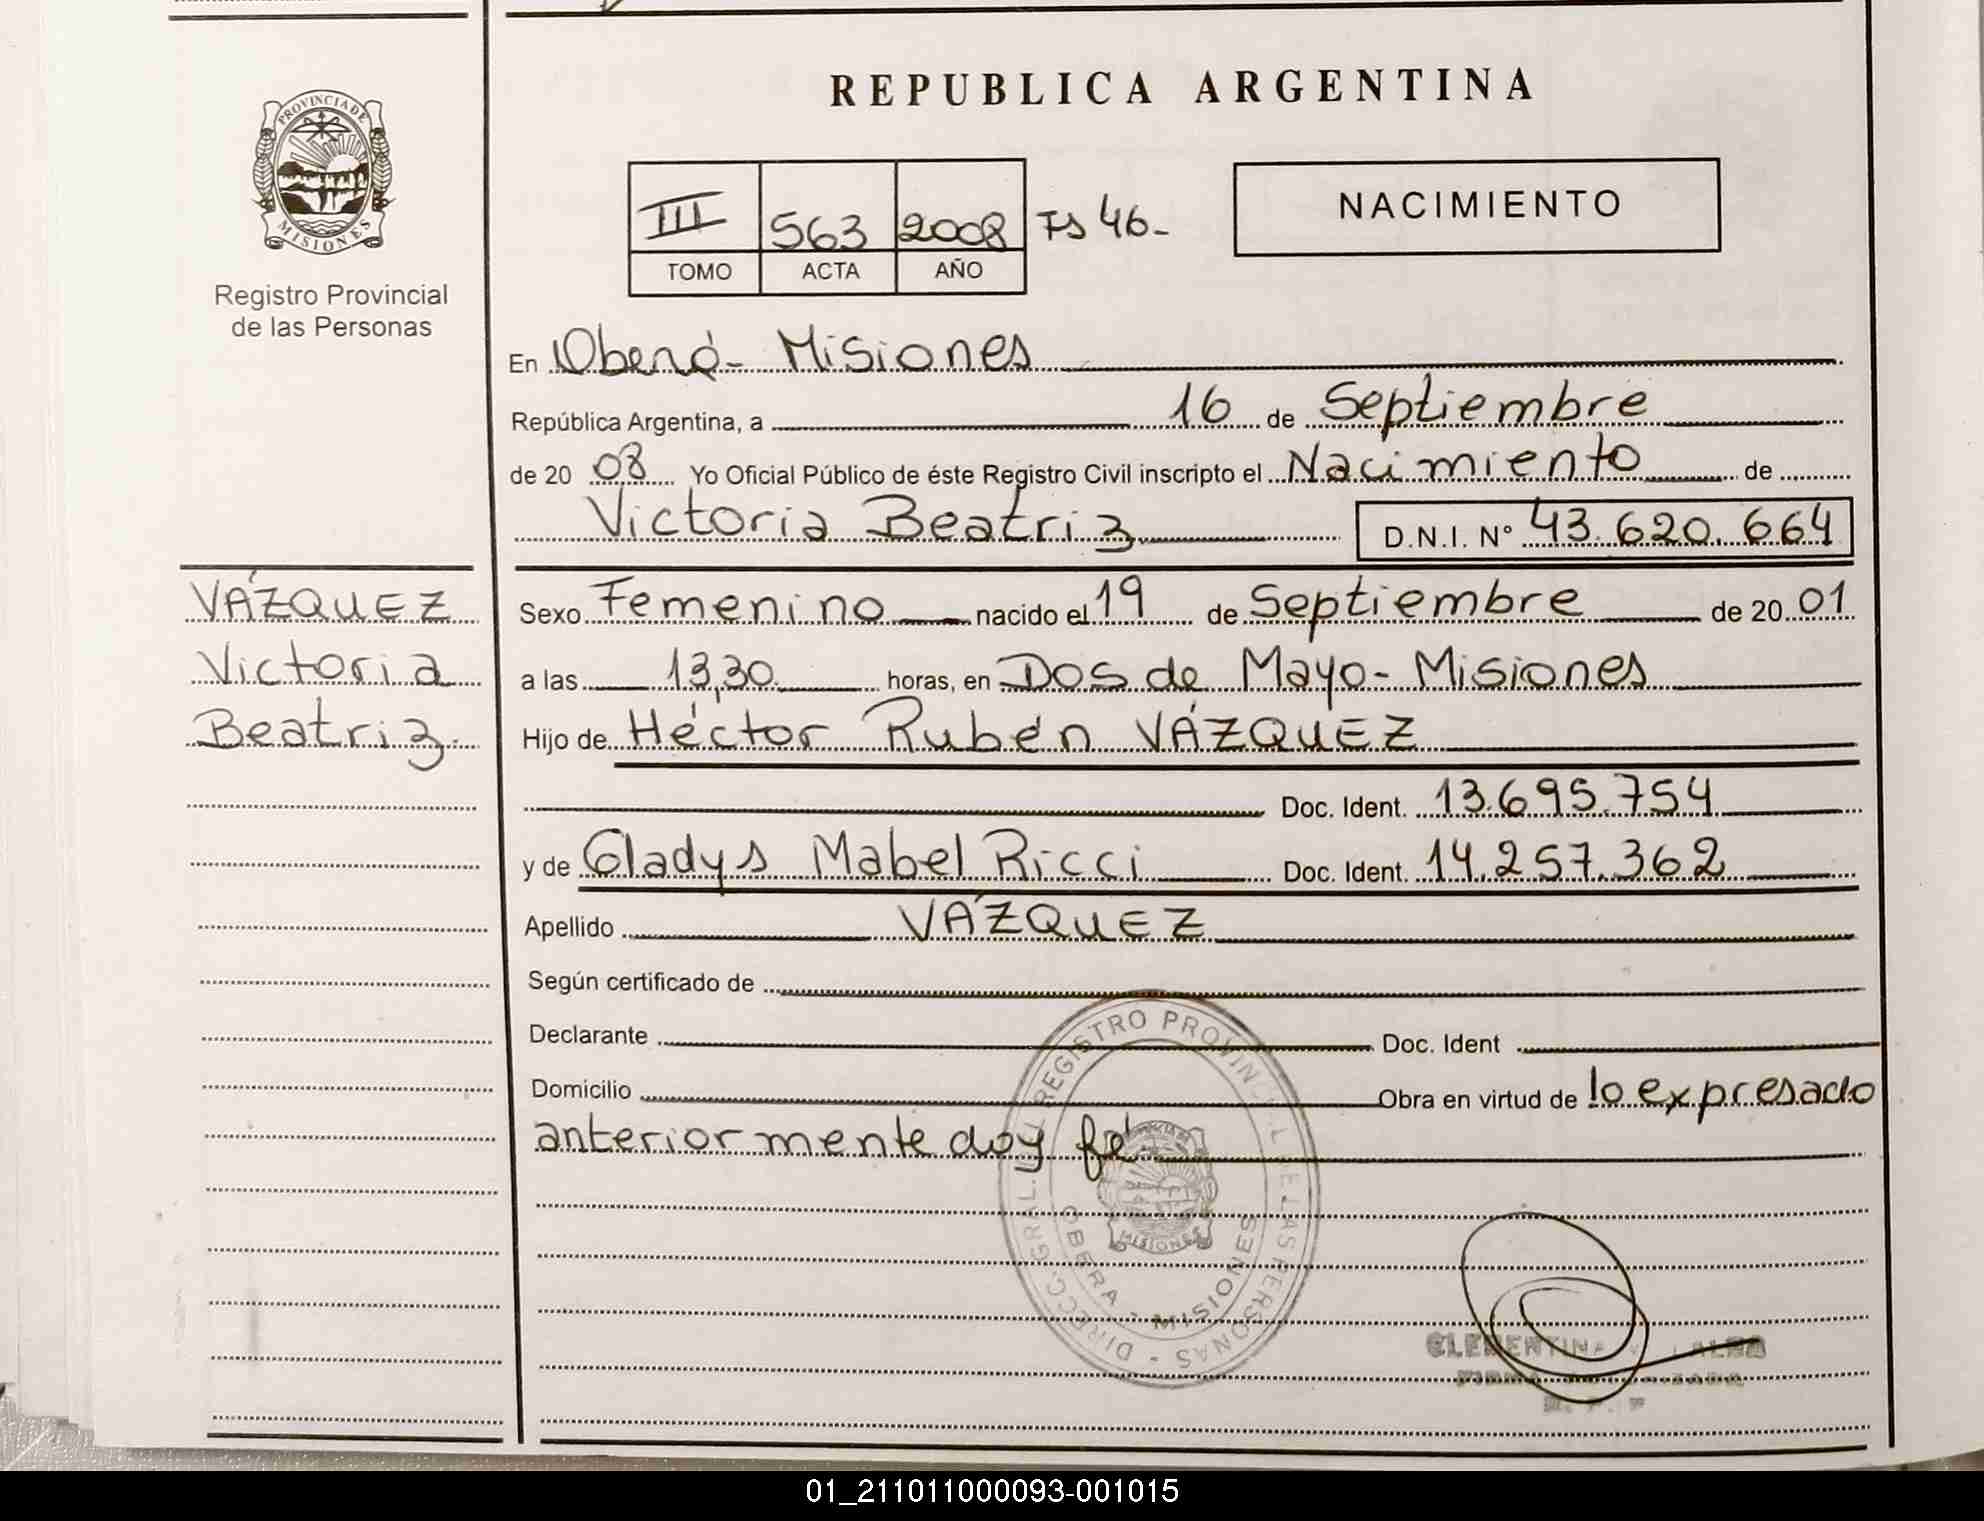 REPUBLICA ARGENTINA
PROVINCIA DE MISIONES
Registro Provincial
de las Personas
III 563 2008 Fs 46-
TOMO ACTA AÑO
NACIMIENTO
En Oberá- Misiones
República Argentina, a 16 de Septiembre
de 20 08 Yo Oficial Público de éste Registro Civil inscripto el Nacimiento de
Victoria Beatriz D.N.I. Nº 43.620.664
VÁZQUEZ
Victoria
Beatriz.
Sexo Femenino nacido el 19 de Septiembre de 20 01
a las 13,30 horas, en Dos de Mayo- Misiones
Hijo de Héctor Rubén VÁZQUEZ
Doc. Ident. 13.695.754
y de Gladys Mabel Ricci Doc. Ident. 14.257.362
Apellido VÁZQUEZ
Según certificado de
Declarante Doc. Ident
Domicilio Obra en virtud de lo expresado
anteriormente doy fé
DIRECC. GRAL. DEL REGISTRO PROVINCIAL DE LAS PERSONAS -
OBERA - MISIONES
MISIONES
CLEMENTINA
FIRMA
01_211011000093-001015